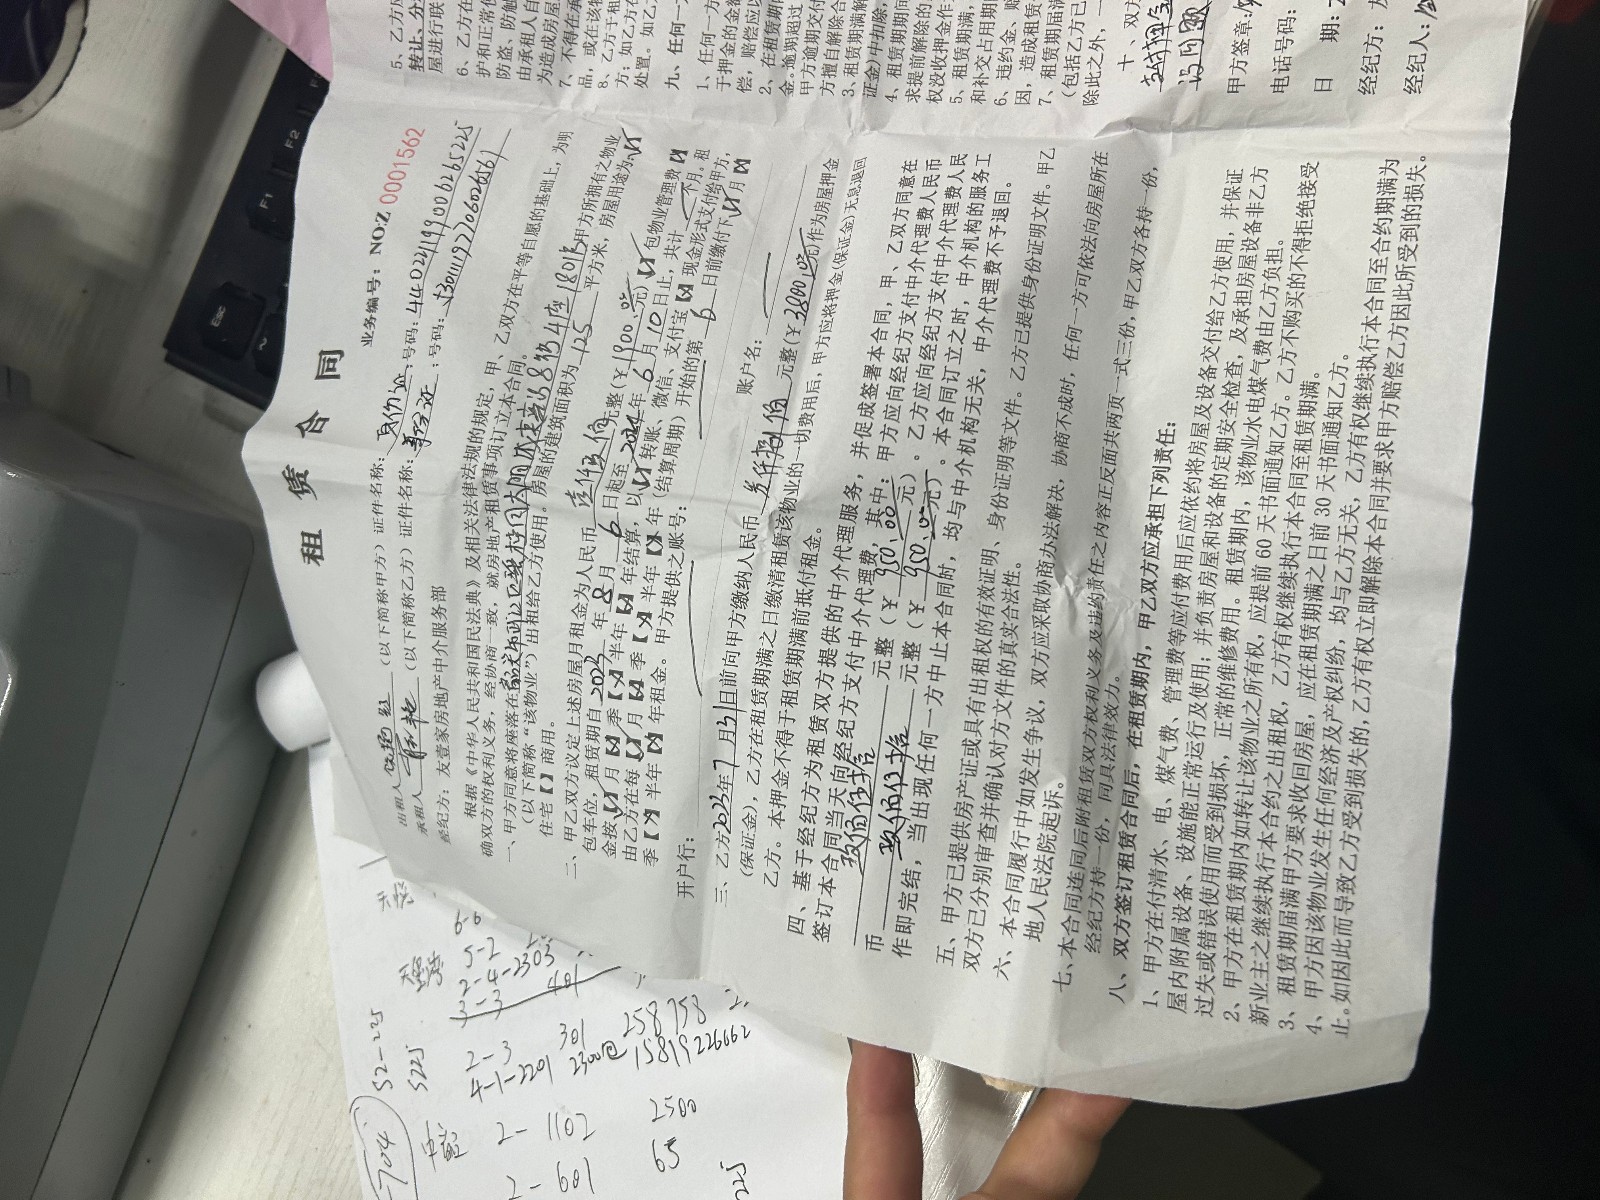 租赁合同
业务编号：NO:Z 0001562
出租人（以下简称甲方）证件名称：身份证，号码：440221199006265225
承租人（以下简称乙方）证件名称：身份证：号码：
经纪方：友壹家房地产中介服务部
根据《中华人民共和国民法典》及相关法律法规的规定，甲、乙双方在平等自愿的基础上，为明
确双方的权利义务，经协商一致，就房地产租赁事项订立本合同。
一、甲方同意将座落在 8栋4座1801房甲方所拥有之物业
（以下简称“该物业”）出租给乙方使用。房屋的建筑面积为125平方米，房屋用途为【√】
住宅【】商用。
二、甲乙双方议定上述房屋月租金为人民币壹仟玖佰元整（￥1900.00元）【√】包物业管理费【×】
包车位，租赁期自2023年8月6日起至2024年6月10日止，共计 个月。租
金按【√】月【×】季【×】半年【×】年结算，以【√】转账、微信、支付宝【×】现金形式支付给甲方，
由乙方在每【√】月【×】季【×】半年【×】年（结算周期）开始的第6日前缴付下【√】月【×】
季【×】半年【×】年租金。甲方提供之账号：
开户行： 账户名：
三、乙方2023年7月31日前向甲方缴纳人民币叁仟捌佰元整（￥3800.00元）作为房屋押金
（保证金），乙方在租赁期满之日缴清租赁该物业的一切费用后，甲方应将押金（保证金）无息退回
乙方。本押金不得于租赁期满前抵付租金。
四、基于经纪方为租赁双方提供的中介代理服务，并促成签署本合同，甲、乙双方同意在
签订本合同当天向经纪方支付中介代理费，其中：甲方应向经纪方支付中介代理费人民币
玖佰伍拾元整（￥950.00元）。乙方应向经纪方支付中介代理费人民
币玖佰伍拾元整（￥950.00元）。本合同订立之时，中介机构的服务工
作即完结，当出现任何一方中止本合同时，均与中介机构无关，中介代理费不予退回。
五、甲方已提供房产证或具有出租权的有效证明、身份证明等文件。乙方已提供身份证明文件。甲乙
双方已分别审查并确认对方文件的真实合法性。
六、本合同履行中如发生争议，双方应采取协商办法解决，协商不成时，任何一方可依法向房屋所在
地人民法院起诉。
七、本合同连同后附租赁双方权利义务及违约责任之内容正反面共两页一式三份，甲乙双方各持一份，
经纪方持一份，同具法律效力。
八、双方签订租赁合同后，在租赁期内，甲乙双方应承担下列责任：
1、甲方在付清水、电、煤气费、管理费等应付费用后应依约将房屋及设备交付给乙方使用，并保证
屋内附属设备、设施能正常运行及使用；并负责房屋和设备的定期安全检查，及承担房屋设备非乙方
过失或错误使用而受到损坏，正常的维修费用。租赁期内，该物业水电煤气费由乙方负担。
2、甲方在租赁期内如转让该物业之所有权，应提前60天书面通知乙方。乙方不购买的不得拒绝接受
新业主之继续执行本合约之出租权，乙方有权继续执行本合同至租赁期满。
3、租赁期届满甲方要求收回房屋，应在租赁期满之日前30天书面通知乙方。
4、甲方因该物业发生任何经济及产权纠纷，均与乙方无关，乙方有权继续执行本合同至合约期满为
止。如因此而导致乙方受到损失的，乙方有权立即解除本合同并要求甲方赔偿乙方因此所受到的损失。
5、乙方应
转让、分
屋进行联
6、乙方在
护和正常使
防盗、防触
由承租人自
为造成房屋
7、不得在承
品，或在该物
8、乙方于租
方；如乙方在
处置。如乙方
九、任何一方
1、任何一方
于押金的金额
偿，赔偿应以
2、在租赁期
金。逾期超过
甲方逾期交付
方擅自解除合
3、租赁期满解
证金）中扣除，
4、租赁期期间
求提前解除的
权没收押金作
5、租赁期满，
和补交占用期
6、违约金、赔
因，造成租赁
7、租赁期届满
（包括乙方已
除此之外，一
十、双方
甲方签章：
电话号码：
日 期：2
经纪方：友
经纪人：
Esc
F1
F2
5-2
2-4-2303
3-3 401
52-225
5225
2-3 301 258758
4-1-2201 2300 15819226662
2-1102 2500
2-601 65
704
225